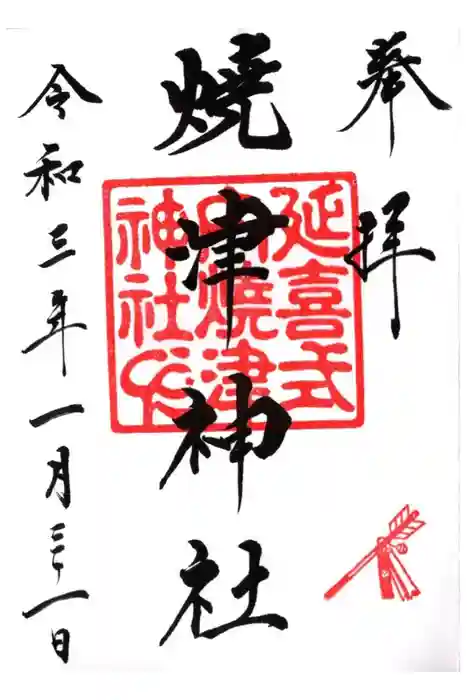 奉拝
燒津神社
令和三年一月三十一日
延喜式
内燒津
神社印